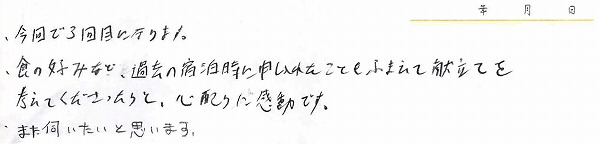 年 月 日
・今回で3回目になります。
・食の好みなど、過去の宿泊時に申し入れたこともふまえて献立てを
考えてくださったりと、心配りに感動です。
・また伺いたいと思います。